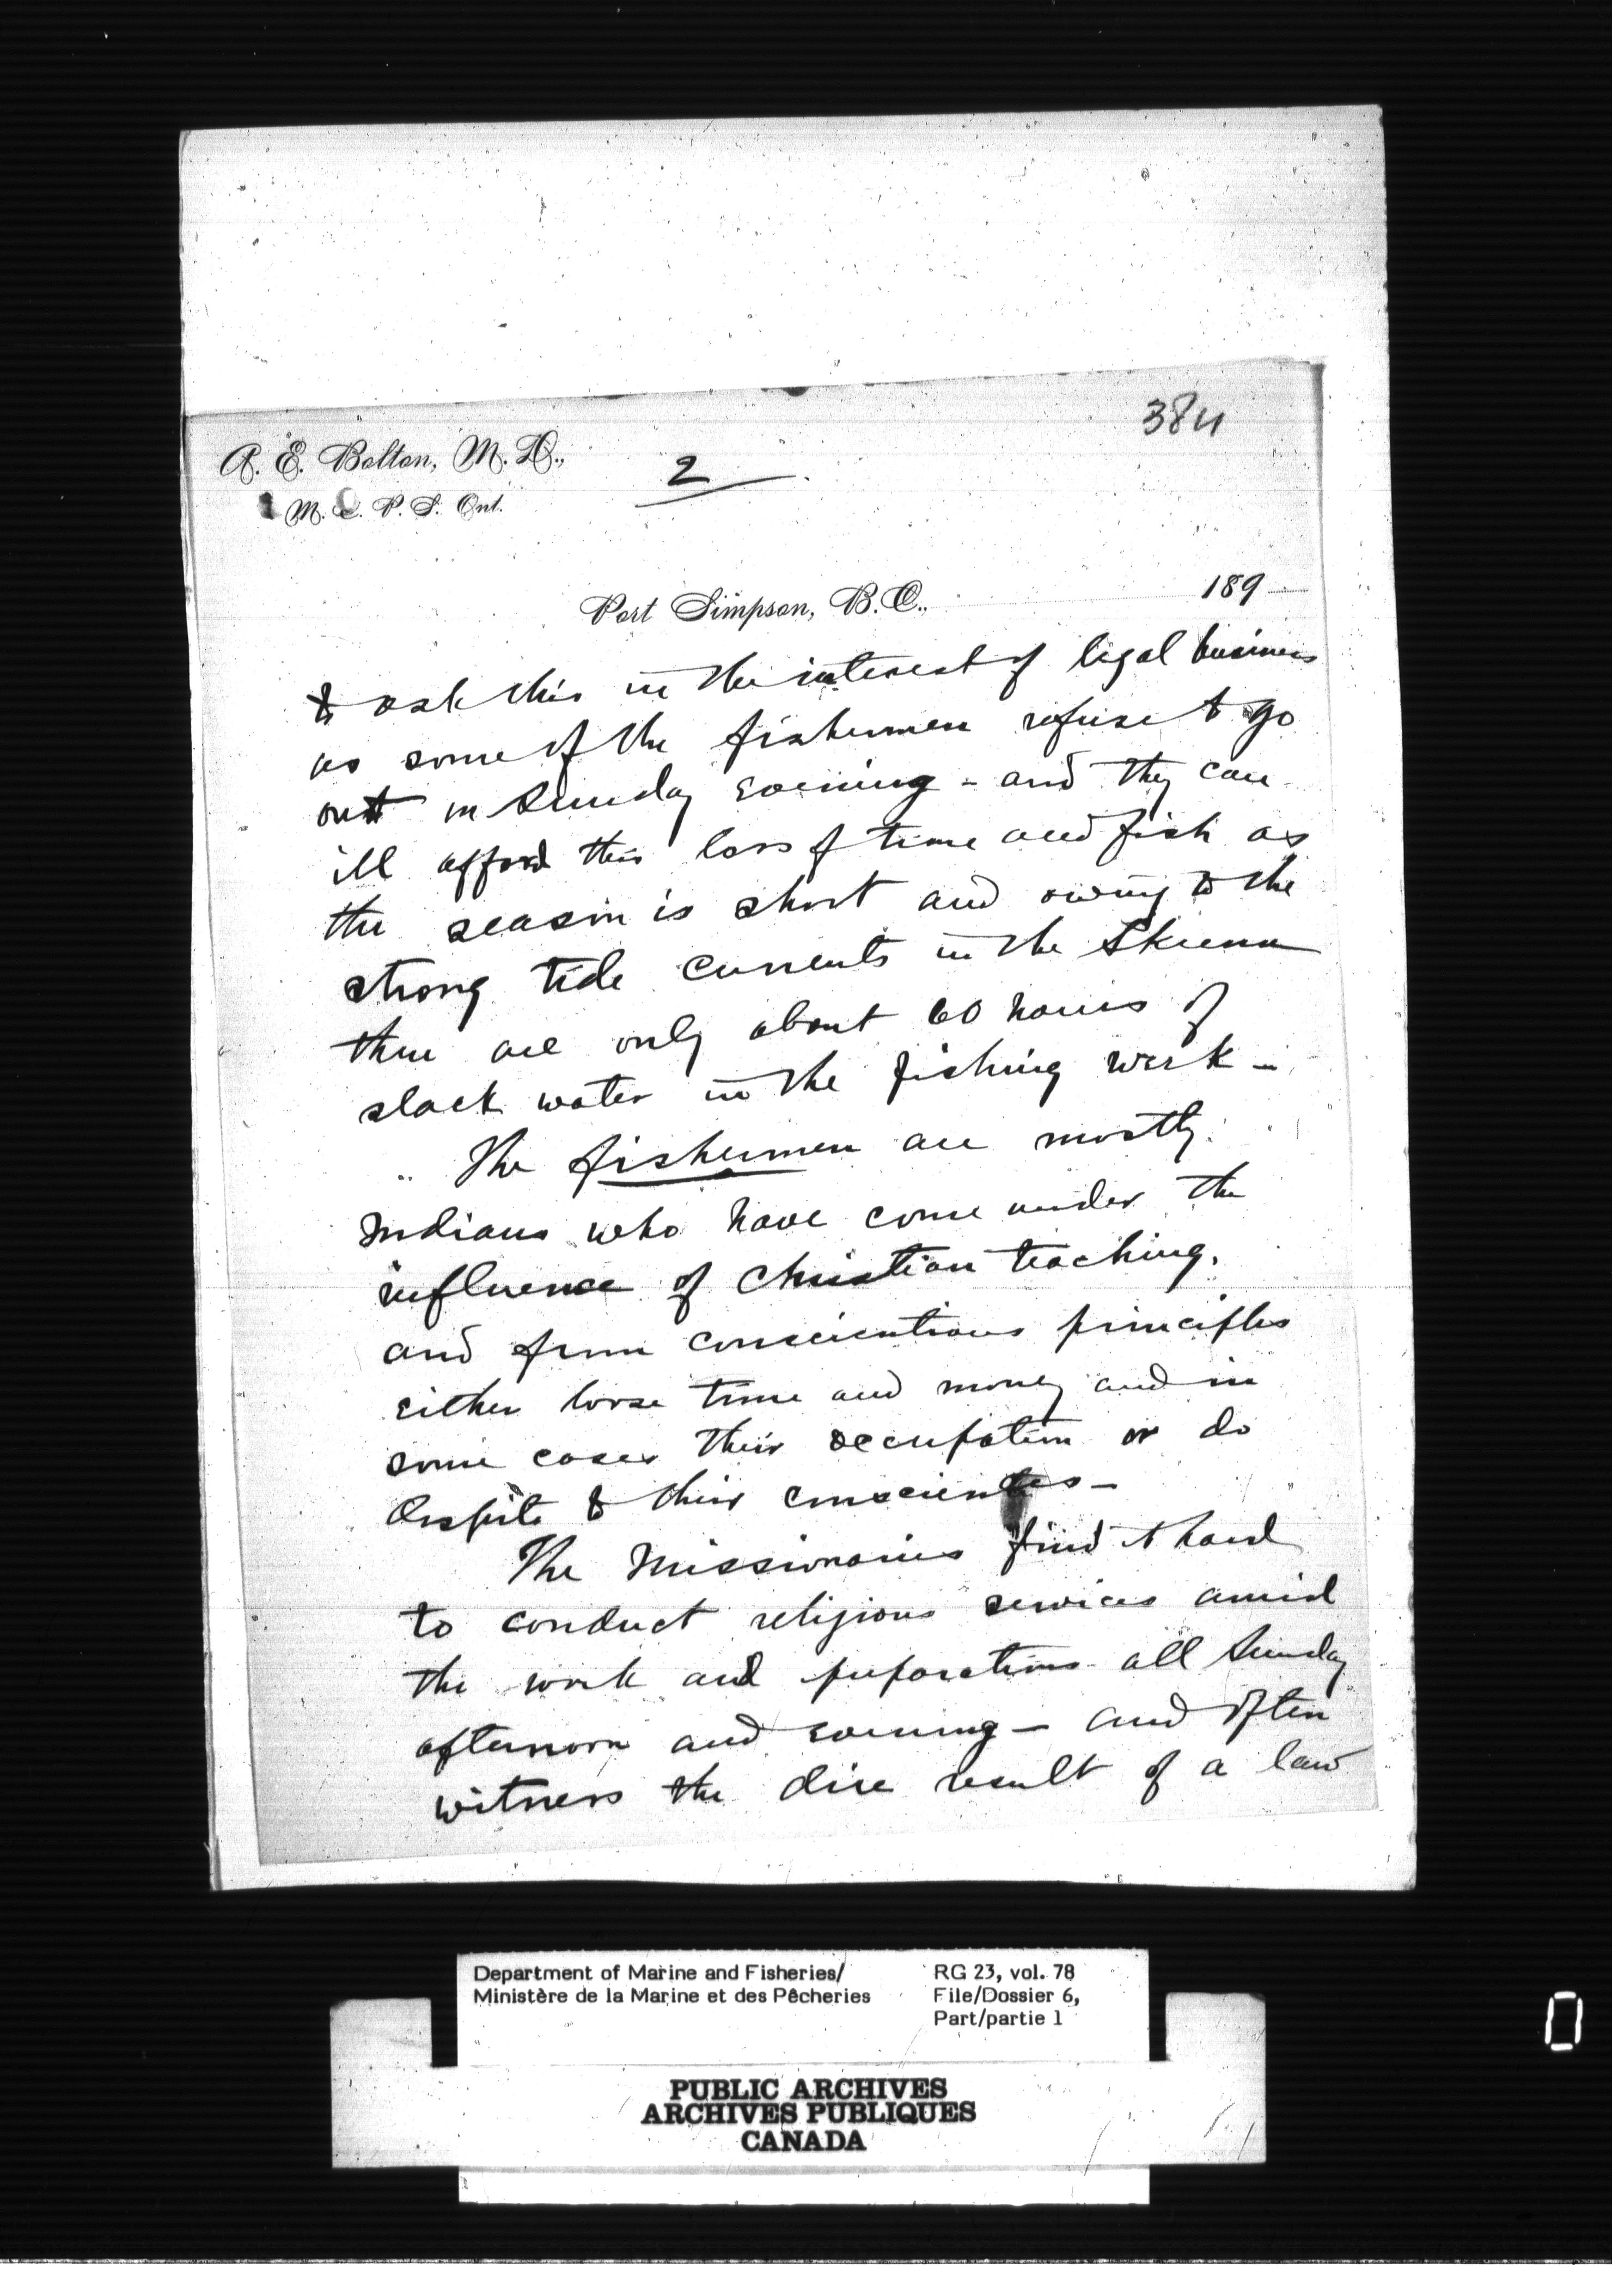 384
A. E. Bolton, M. D.,
2
M. C. P. S. Ont.
Port Simpson, B. C., 189
to ask this in the interest of legal business
as some of the fishermen refuse to go
out on Sunday evening - and they can
ill afford this loss of time and fish as
the season is short and owing to the
strong tide currents in the Skeena
there are only about 60 hours of
slack water in the fishing week -
The fishermen are mostly
Indians who have come under the
influence of Christian teaching.
and from conscientious principles
either loose time and money and in
some cases their occupation or do
despite to their consciences -
The Missionaries find it hard
to conduct religious services amid
the work and preparations all Sunday
afternoon and evening - and often
witness the dire result of a law
Department of Marine and Fisheries/
Ministère de la Marine et des Pêcheries
RG 23, vol. 78
File/Dossier 6,
Part/partie 1
PUBLIC ARCHIVES
ARCHIVES PUBLIQUES
CANADA